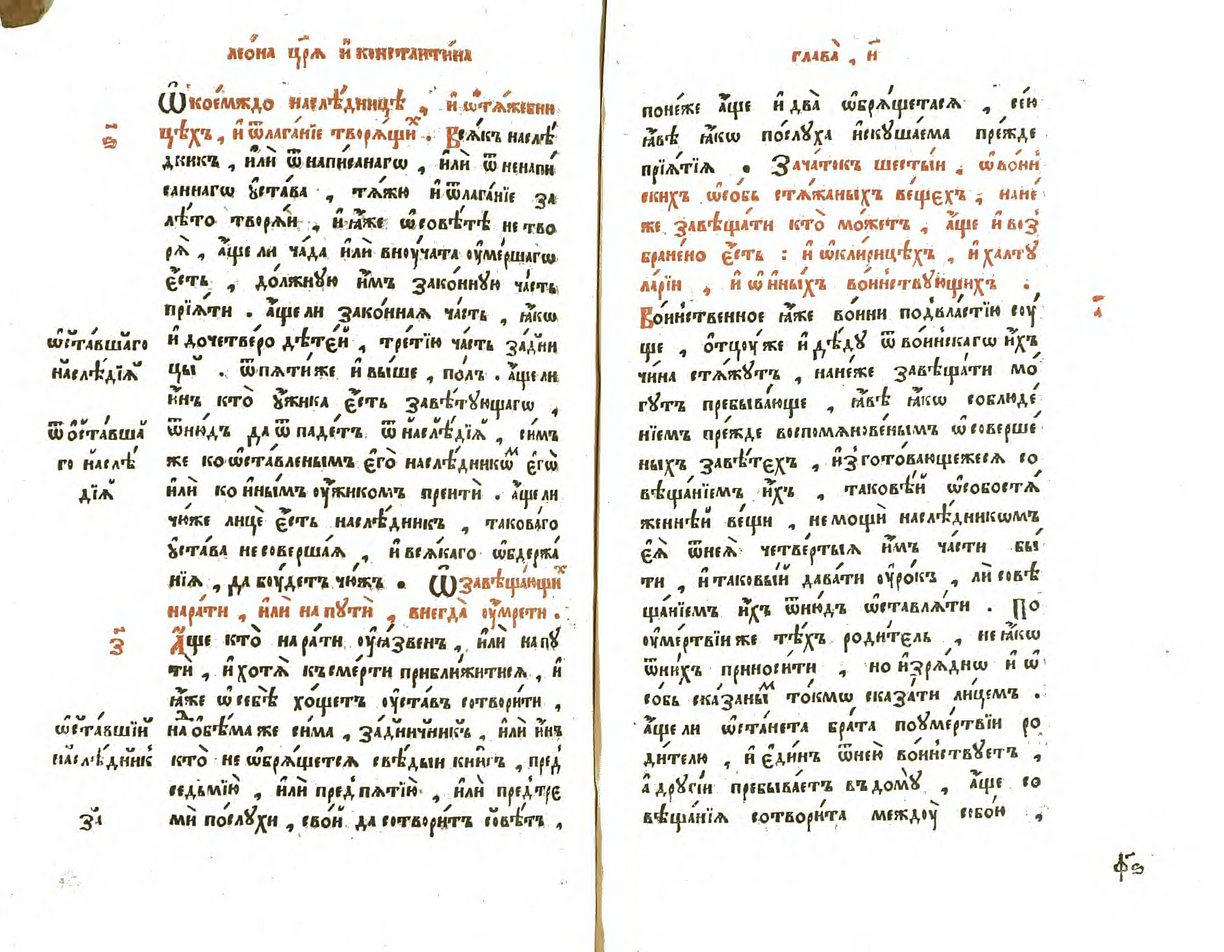 леѡ́на цр҃ѧ̀ и҆ константи́на
Ѿ коемꙋ́ждо наслѣ́дницѣ , и҆ ѡ҆тѧ́жебни
ѕ҃і
цѣхъ , и҆ ѿлага́нїе творѧ́щиⷯ . Всѧ́къ наслѣ́
дникъ , и҆лѝ ѿ напи́санагѡ , и҆лѝ ѿ ненапи́
саннагѡ ᲂу҆ста́ва , тѧ́жю и҆ ѿлага́нїе за
лѣ́то творѧ́й , и҆ ꙗ҆́же ѡ҆ совѣ́тѣ не тво
рѧ̀ , а҆́ще ли ча́да и҆лѝ внꙋ́чата ᲂу҆ме́ршагѡ
є҆́сть , до́лжную и҆̀мъ зако́нную ча́сть
прїѧ́ти . а҆́ще ли зако́нная ча́сть , ꙗ҆́кѡ
ѡ҆ста́вшаго
и҆ до че́тверо дѣте́й , тре́тїю ча́сть за́дни
наслѣ́дїѧ
цы . ѿ пѧти́ же и҆ вы́ше , по́лъ . а҆́ще ли
и҆́нъ кто̀ ᲂу҆́жика є҆́сть завѣ́тующагѡ ,
ѿ ѡ҆ста́вша
ѿню́дъ да ѿпаде́тъ ѿ наслѣ́дїѧ , си́мъ
го наслѣ́
же ко ѡ҆ста́вленымъ є҆го̀ наслѣ́дникѡⷨ є҆гѡ̀
дїѧ
и҆лѝ ко и҆ны́мъ ᲂу҆́жикомъ преитѝ . а҆́ще ли
чю́же лицѐ є҆́сть наслѣ́дникъ , такова́го
ᲂу҆ста́ва не соверша́я , и҆ всѧ́каго ѡ҆бдержа́
нїѧ , да бꙋ́детъ чю́жъ . Ѿ завѣща́ющиⷯ
на ра́ти , и҆лѝ на пꙋтѝ , внегда̀ ᲂу҆мре́ти .
з҃і
А҆́ще кто̀ на ра́ти ᲂу҆ѧ́звенъ , и҆лѝ на пꙋ
тѝ , и҆ хотѧ̀ къ сме́рти прибли́житисѧ , и҆
ꙗ҆́же ѡ҆ себѣ̀ хо́щетъ ᲂу҆ста́въ сотвори́ти ,
ѡ҆ста́вшїй
на ѻ҆бѣ́ма же сима , за́дничникъ , и҆лѝ и҆́нъ
наслѣ́дник
кто̀ не ѡ҆брѧ́щетсѧ свѣ́дыи кни́гъ , пред
седьмїю , и҆лѝ пред пѧтїю , и҆лѝ пред тре
за҃
мѝ по́слꙋхи , сво́й да сотвори́тъ совѣ́тъ ,
глава̀ , и҃
поне́же а҆́ще и҆ два̀ ѡ҆брѧ́щетасѧ , сею̀
ꙗ҆́вѣ ꙗ҆́кѡ по́слꙋха и҆скꙋша́ема пре́жде
прїѧ́тїѧ . Зача́токъ шесты́й . ѡ҆ во́ин
скихъ ѡ҆со́бь стѧ́жаныхъ ве́щехъ , на не́
же завѣща́ти кто̀ мо́жетъ , а҆́ще и҆ воз
бране́но є҆́сть : и҆ ѡ҆ кли́рицѣхъ , и҆ халтꙋ
ла́рїи , и҆ ѡ҆ и҆ны́хъ во́инствꙋющихъ .
а҃
Во́инственное ꙗ҆́же во́ини под вла́стїю сꙋ
ще , ѻ҆тцꙋ́ же и҆ дѣ́дꙋ ѿ во́инскагѡ и҆́хъ
чи́на стѧ́жꙋтъ , на не́же завѣща́ти мо́
гꙋтъ пребыва́юще , ꙗ҆́вѣ ꙗ҆́кѡ соблюде́
нїемъ пре́жде воспомѧнове́нымъ ѡ҆ соверше́
ныхъ завѣ́техъ , и҆зготова́ющежесѧ со
вѣща́нїемъ и҆́хъ , тако́вѣй ѡ҆собостѧ̀
же́ннѣй ве́щи , не мощѝ наслѣ́дникѡмъ
є҆ѧ̀ ѿ неѧ̀ четве́ртыѧ и҆̀мъ ча́сти бы́
ти , и҆ таковы́й дава́ти ᲂу҆ро́къ , ли совѣ
ща́нїемъ и҆́хъ ѿню́дъ ѡ҆ставлѧ́ти . По
ᲂу҆ме́ртвїи же тѣ́хъ роди́тель , не ꙗ҆́кѡ
ѿ ни́хъ приноси́ти , но и҆зрѧ́днѡ и҆ ѡ҆
со́бь ска́заныⷨ то́кмѡ сказа́ти ли́цемъ .
а҆́ще ли ѡ҆ста́нета бра́та по ᲂу҆ме́ртвїи ро
ди́телю , и҆ є҆ди́нъ ѿ нею̀ во́инствꙋетъ ,
а҆ дрꙋгі́й пребыва́етъ в домꙋ̀ , а҆́ще со
вѣща́нїѧ сотвори́та междꙋ̀ собо́ю ,
ф҃ѕ